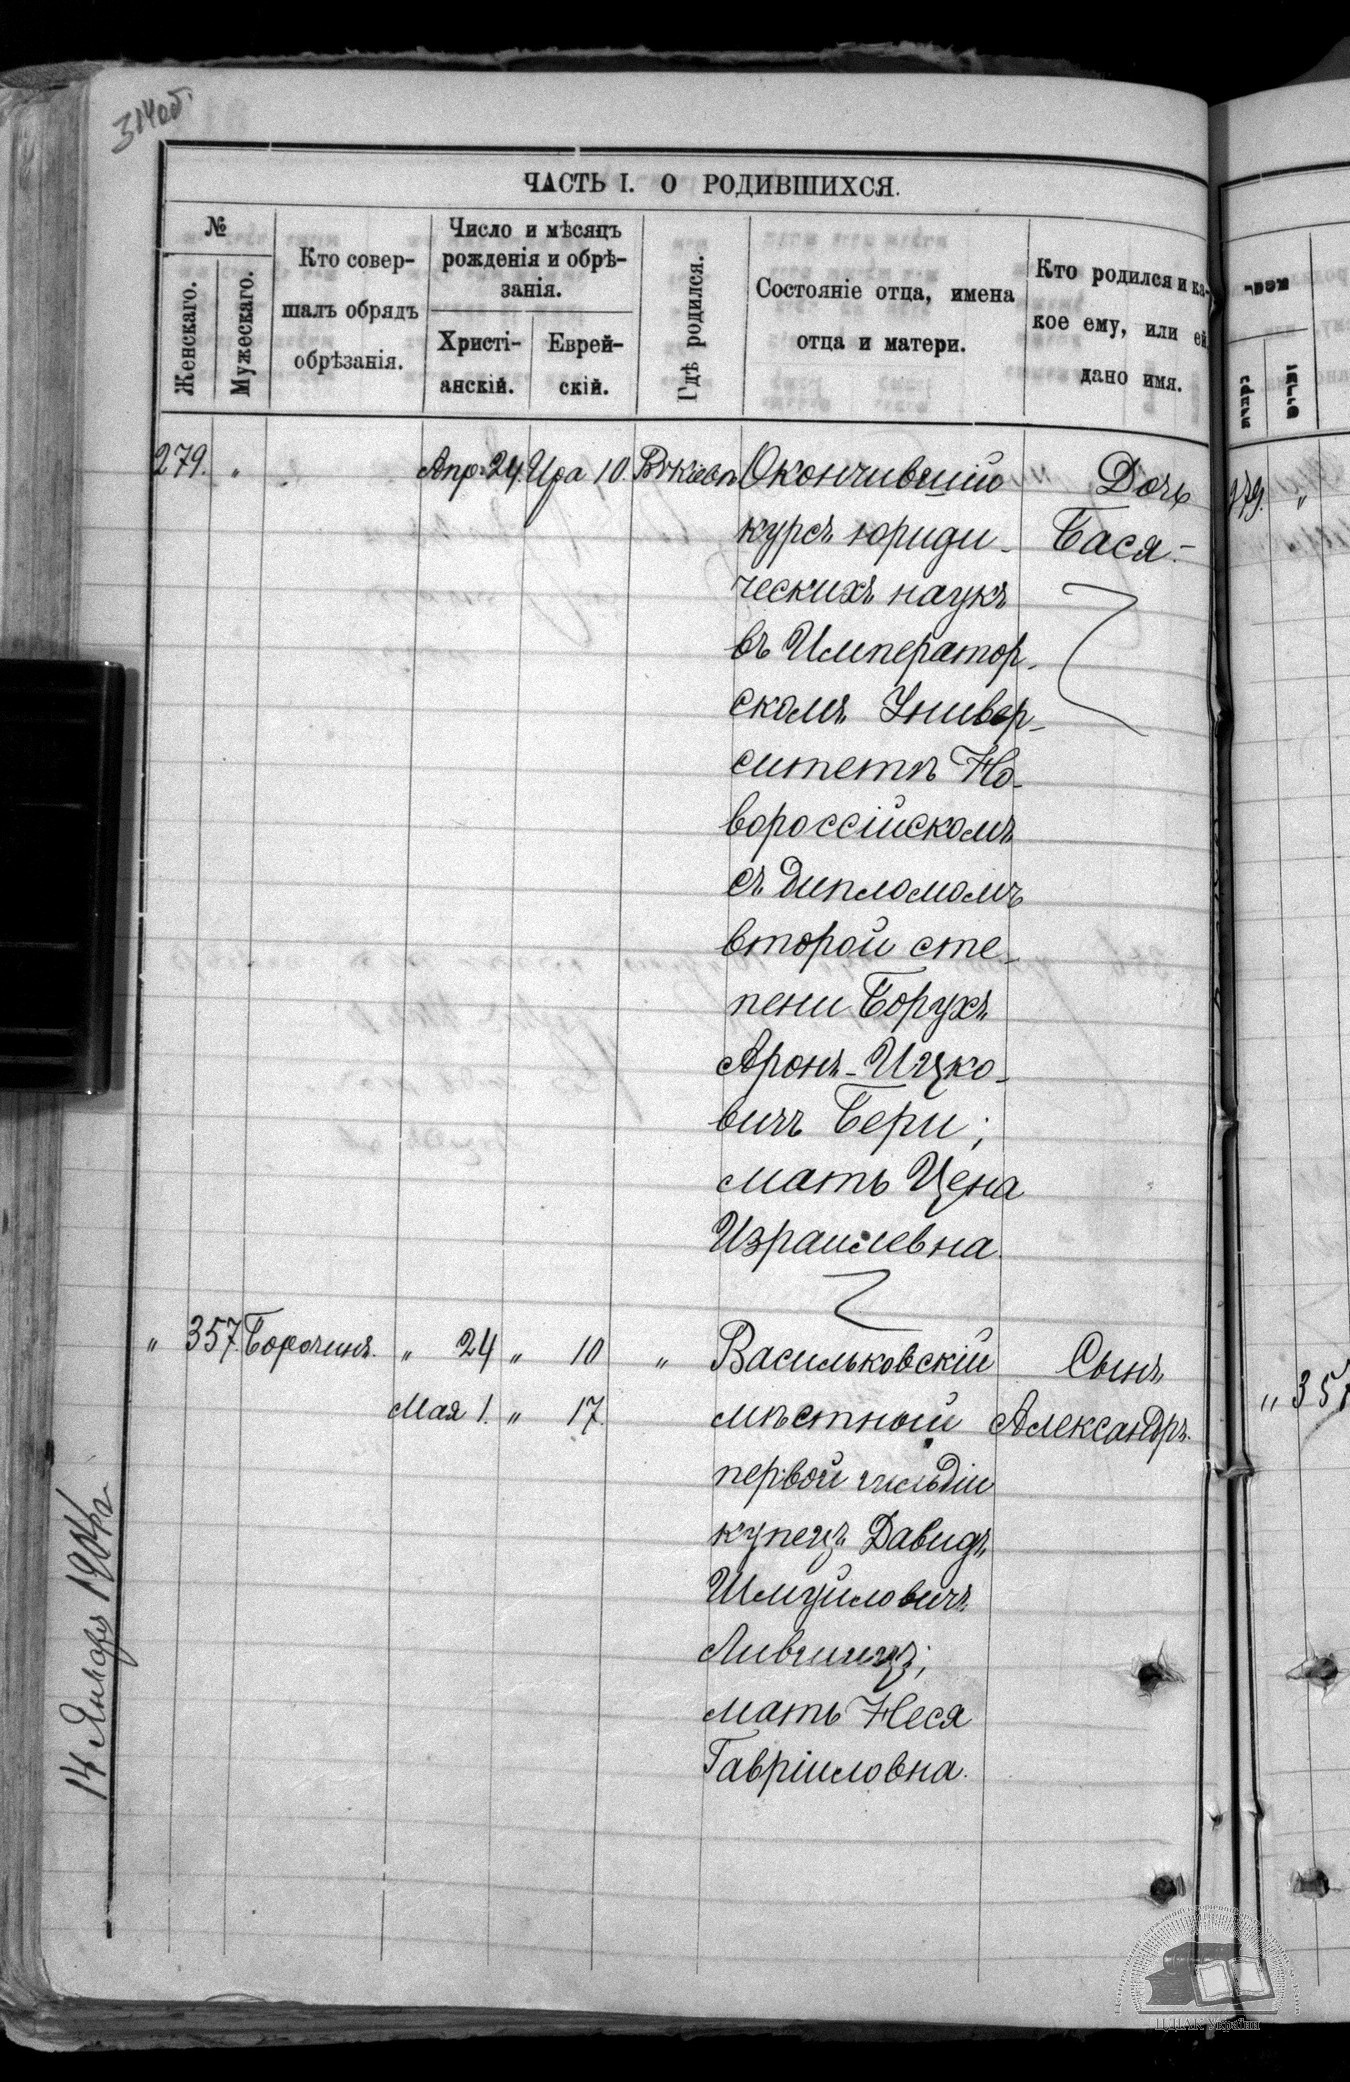 314об.
ЧАСТЬ I. О РОДИВШИХСЯ.
№
Женскаго.
Мужескаго.
Кто совер-
шалъ обрядъ
обрѣзанія.
Число и мѣсяцъ
рожденія и обрѣ-
занія.
Христі-
анскій.
Еврей-
скій.
Гдѣ родился.
Состояніе отца, имена
отца и матери.
Кто родился и ка-
кое ему, или ей
дано имя.
279. " Апр. 24. Ира 10. Въ Кіевѣ Окончившій Дочь
курсъ юриди- Бася
ческихъ наукъ
въ Император-
скомъ Универ-
ситетѣ Но-
вороссійскомъ
съ дипломомъ
второй сте-
пени Борухъ
Аронъ-Ицко-
вичъ Бери;
мать Цена
Израилевна.
" 357 Борочинъ. " 24 " 10 " Васильковскій Сынъ
Мая 1. " 17. мѣстный Александръ.
первой гильдіи
купецъ Давидъ
Шмуйловичъ
Лившицъ;
мать Неся
Гавріиловна.
14 Января 1904 г.
279. "
" 357
ЦДІАК України